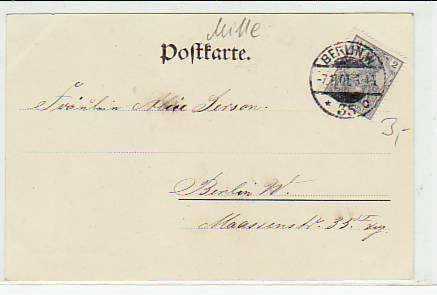 Mille
Postkarte.
BERLIN W.
2
35
3,-
Fräulein Alice Ierson.
Berlin W.
Maassenstr. 35 I